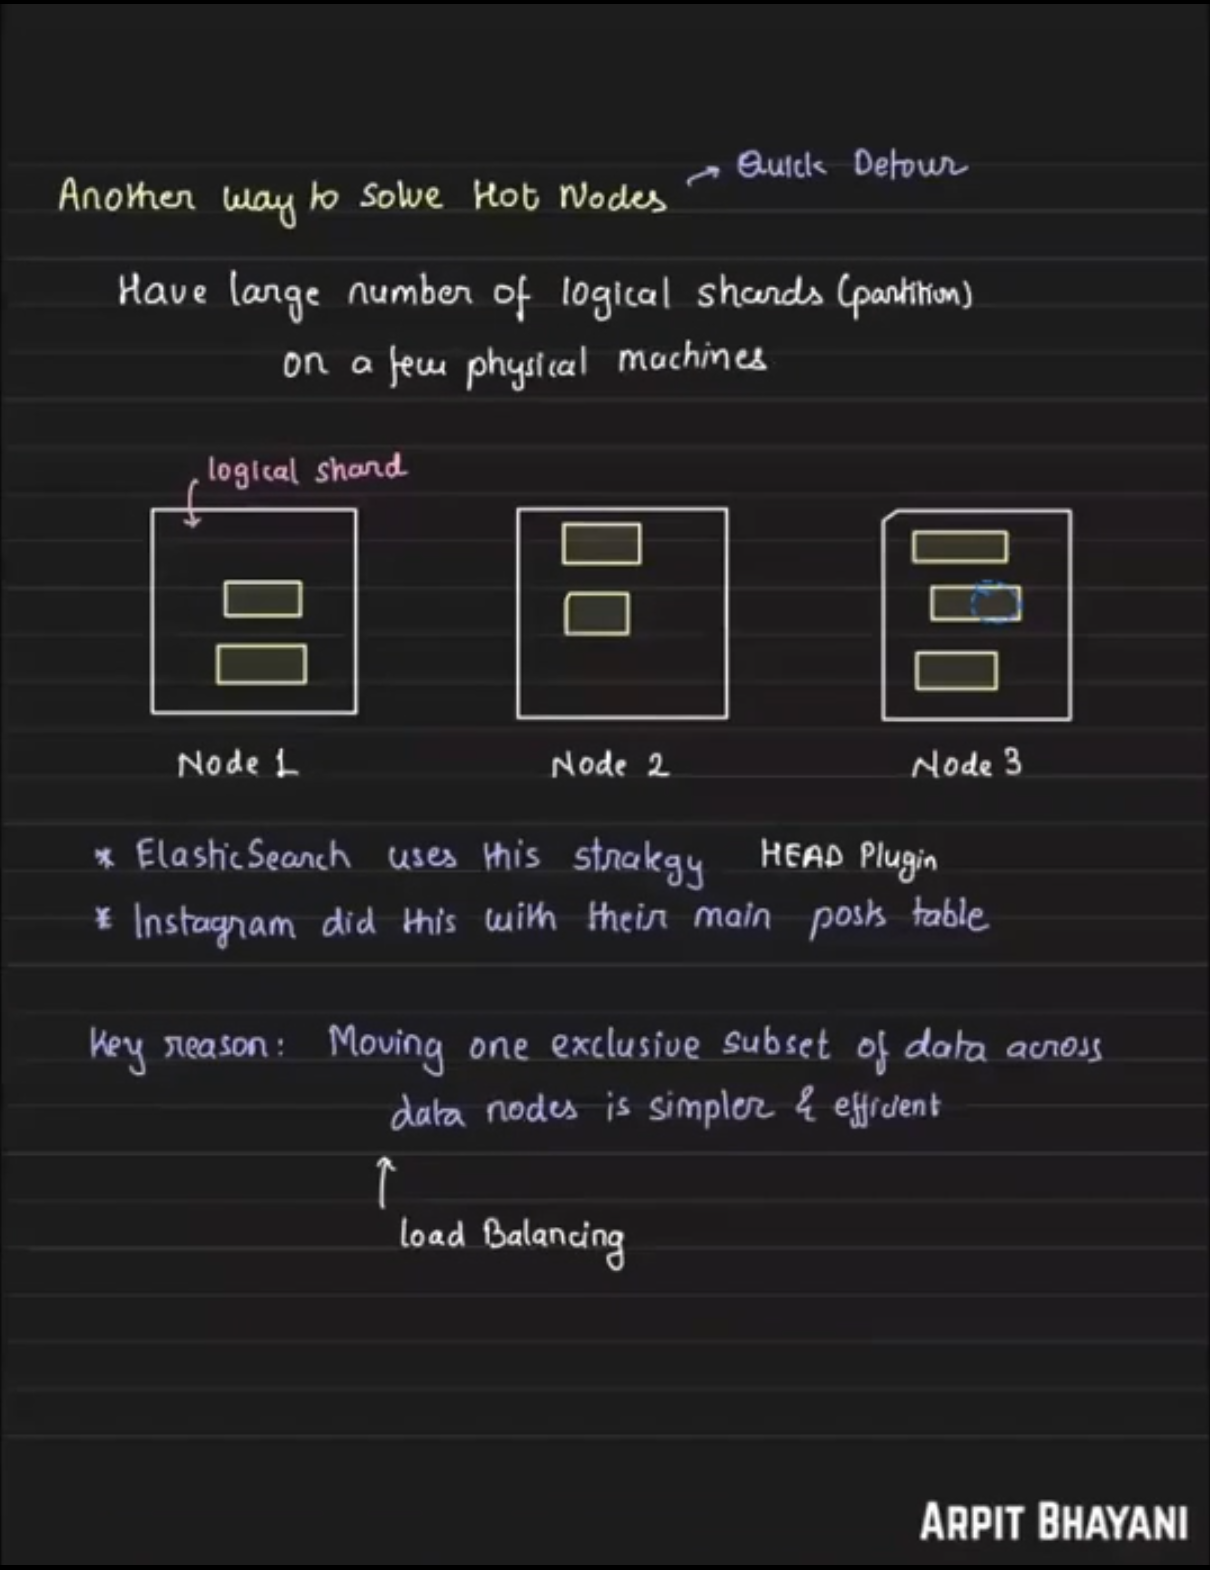 Another way to solve Hot Nodes → Quick Detour
Have large number of logical shards (partition)
on a few physical machines
logical shard
Node 1
Node 2
Node 3
* ElasticSearch uses this strategy HEAD Plugin
* Instagram did this with their main posts table
Key reason: Moving one exclusive subset of data across
data nodes is simpler & efficient
↑
load Balancing
ARPIT BHAYANI